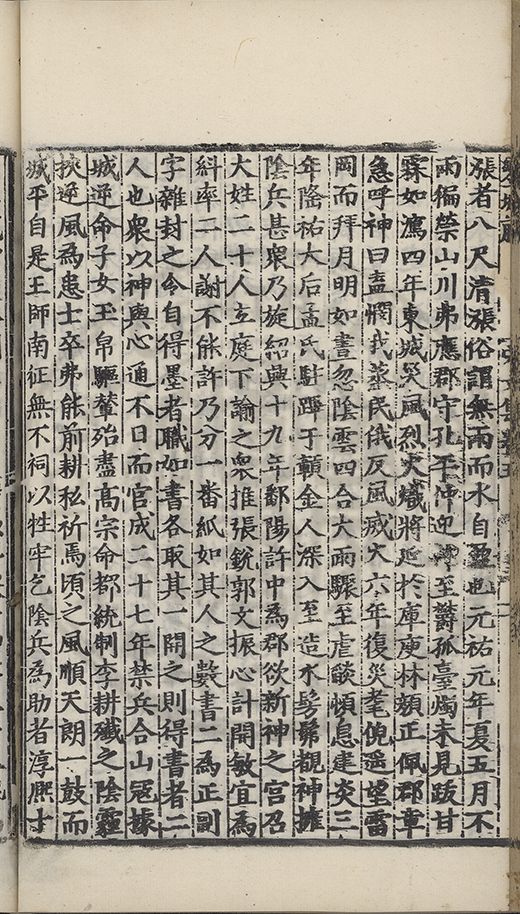 漲者八尺清漲俗謂無雨而水自盈也元祐元年夏五月不
雨徧禜山川弗應郡守孔平仲迎神至鬱孤臺燭未見跋甘
霖如瀉四年東城災風烈火熾將延於庫庾林顏正佩郡章
急呼神曰盍憫我蒸民俄反風滅火六年復災耄倪遥望雷
岡而拜月明如晝忽陰雲四合大雨驟至虐燄頓息建炎三
年隆祐大后孟氏駐蹕于贑金人深入至造水髣髴覩神擁
陰兵甚衆乃旋紹興十九年鄱陽許中為郡欲新神之宮召
大姓二十人立庭下諭之衆推張銳郭文振心計開敏宜為
糾率二人謝不能許乃分一番紙如其人之數書二為正副
字雜封之令自得墨者職如書各取其一開之則得書者二
人也衆以神與心通不日而宮成二十七年禁兵合山冦據
城逆命子女玉帛驅輦殆盡高宗命都統制李耕殱之陰霾
挾逆風為患士卒弗能前耕私祈焉頃之風順天朗一鼓而
城平自是王師南征無不祠以牲牢乞陰兵為助者淳熙十